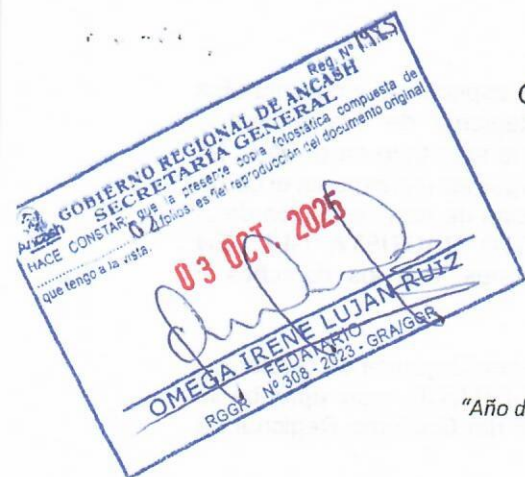 Reg. Nº 1985
GOBIERNO REGIONAL DE ANCASH
SECRETARÍA GENERAL
Ancash
HACE CONSTAR: que la presente copia fotostática compuesta de
02 folios, es fiel reproducción del documento original
que tengo a la vista.
03 OCT. 2025
OMEGA IRENE LUJAN RUIZ
FEDATARIO
RGGR Nº 308 - 2023 - GRA/GGR
"Año d